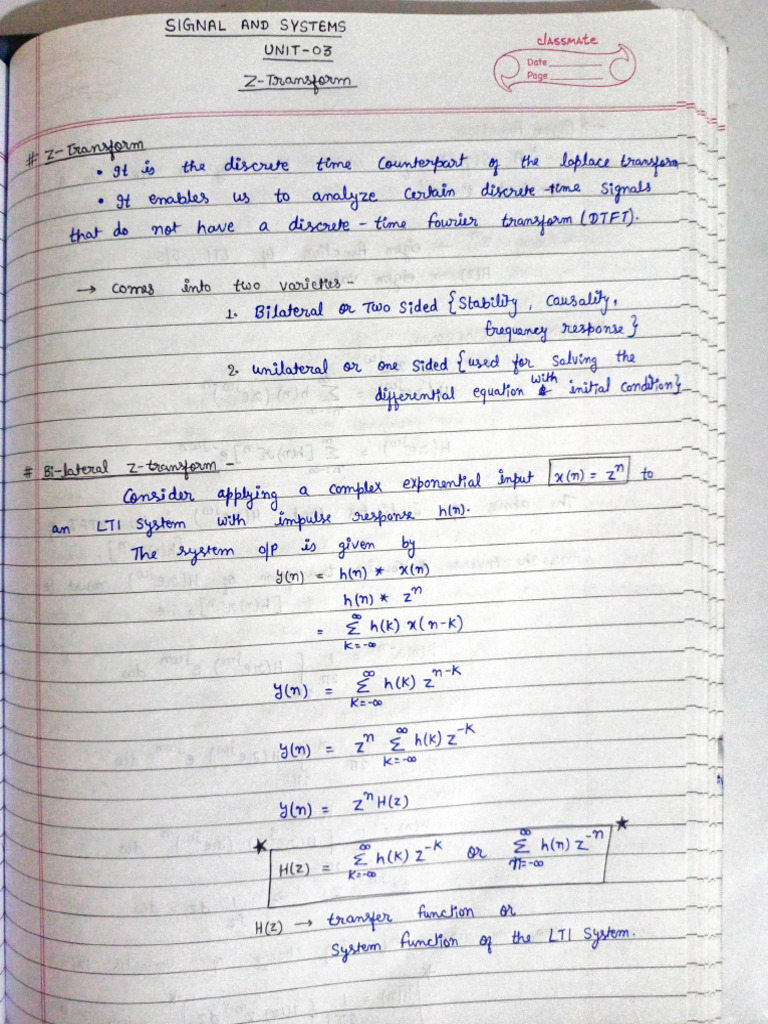 SIGNAL AND SYSTEMS
UNIT-03
Z-Transform
classmate
Date
Page
# Z-transform
• It is the discrete time counterpart of the laplace transform
• It enables us to analyze certain discrete-time signals
that do not have a discrete-time fourier transform (DTFT).
→ comes into two varieties-
1. Bilateral or Two Sided {Stability, Causality,
frequency response}
2. unilateral or one sided {used for solving the
differential equation with initial condition}
# Bi-lateral Z-transform -
Consider applying a complex exponential input x(n) = zⁿ to
an LTI System with impulse response h(n).
The system o/p is given by
y(n) = h(n) * x(n)
h(n) * zⁿ
= ∞ Σ k=-∞ h(k) x(n-k)
y(n) = ∞ Σ k=-∞ h(k) z^n-k
y(n) = zⁿ ∞ Σ k=-∞ h(k) z^-k
y(n) = zⁿ H(z)
H(z) = ∞ Σ k=-∞ h(k) z^-k or ∞ Σ n=-∞ h(n) z^-n
H(z) → transfer function or
System function of the LTI System.